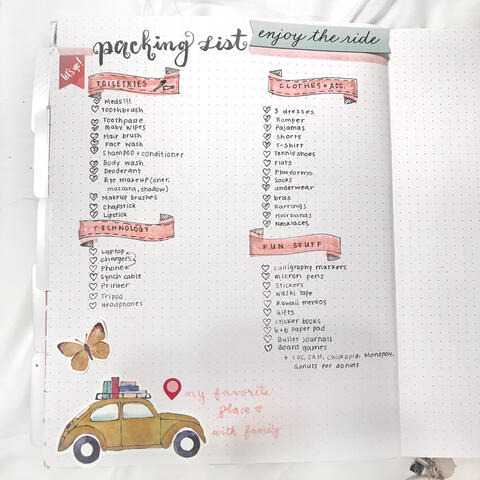 packing list
enjoy the ride
let's go!
TOILETRIES
Meds!!!
Toothbrush
Toothpaste
Baby wipes
Hair brush
Face wash
Shampoo + conditioner
Body wash
Deoderant
Eye makeup (liner,
mascara, shadow)
Makeup brushes
Chapstick
Lipstick
TECHNOLOGY
Laptop
chargers
Phone
Synch cable
Printer
Tripod
Headphones
CLOTHES + ACC.
3 dresses
Romper
Pajamas
Shorts
T-Shirt
Tennis shoes
Flats
Platforms
Socks
underwear
bras
Earrings
Hairbands
Necklaces
FUN STUFF
calligraphy markers
micron pens
Stickers
Washi tape
Kawaii memos
Gifts
sticker books
6x6 paper pad
Bullet journals
Board games
+ COC, CAH, Chickapig, Monopoly,
Gonuts for donuts
my favorite
place
with family